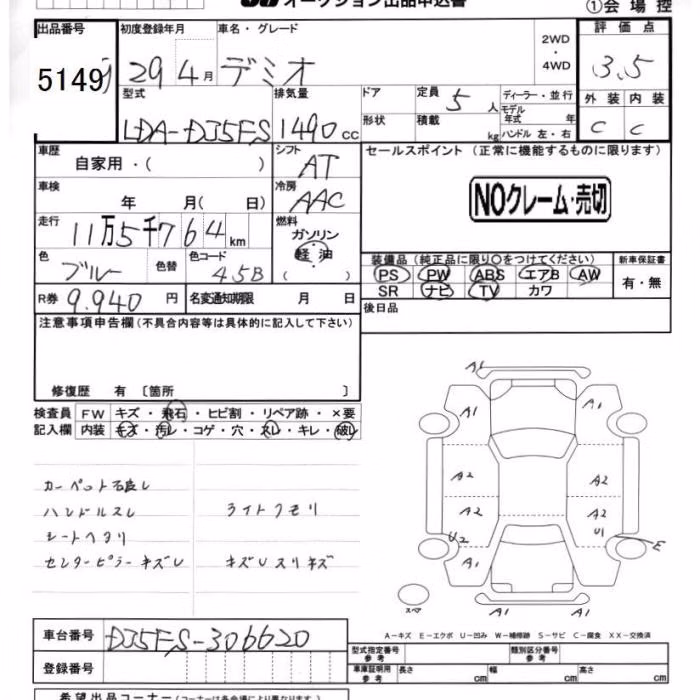 オークション出品申込書
①会場控
出品番号 初度登録年月 車名・グレード 2WD・4WD 評価点
5149 29年4月 デミオ 3.5
型式 排気量 ドア 定員 5人 ディーラー・並行 外装 内装
LDA-DJ5FS 1490cc 形状 積載 kg モデル年式 年 ハンドル 左・右 C C
車歴 自家用・( ) シフト AT セールスポイント (正常に機能するものに限ります)
車検 年 月( 日) 冷房 AAC NOクレーム・売切
走行 11万5千764km 燃料 ガソリン・軽油 ( )
色 ブルー 色替 色コード 45B 装備品(純正品に限り〇をつけてください) 新車保証書
PS PW ABS エアB AW 有・無
SR ナビ TV カワ
R券 9.940円 名変通知期限 月 日 後日品
注意事項申告欄(不具合内容等は具体的に記入して下さい)
修復歴 有 〔箇所 〕
検査員 FW キズ・飛石・ヒビ割・リペア跡・×要
記入欄 内装 キズ・汚レ・コゲ・穴・スレ・キレ・破レ
ハンドルスレ ライトクモリ
シートヘタリ
センターピラーキズU キズUスリキズ
A1
A1 A1
A2 A2
A2 A2
U2 U1 E
A1 A1
スペア A1 A1
A-キズ E-エクボ U-凹み W-補修跡 S-サビ C-腐食 XX-交換済
車台番号 DJ5FS-306620
登録番号
型式指定番号 参考 類別区分番号 参考
車庫証明用 参考 長さ cm 幅 cm 高さ cm
希望出品コーナー(コーナーは各会場により異なります。)